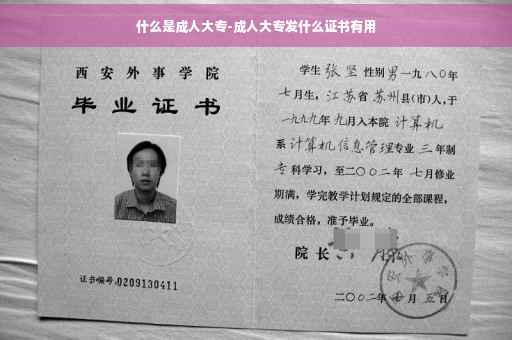 什么是成人大专-成人大专发什么证书有用
西安外事学院
毕业证书
证书编号:0209130411
学生 张坚 性别 男 一九八〇年
七月生,江苏省 苏州县(市)人,于
一九九九年 九月入本院 计算机
系 计算机信息管理专业 三 年制
专 科学习,至二〇〇二年 七月修业
期满,学完教学计划规定的全部课程,
成绩合格,准予毕业。
院长
二〇〇二年 月 五 日